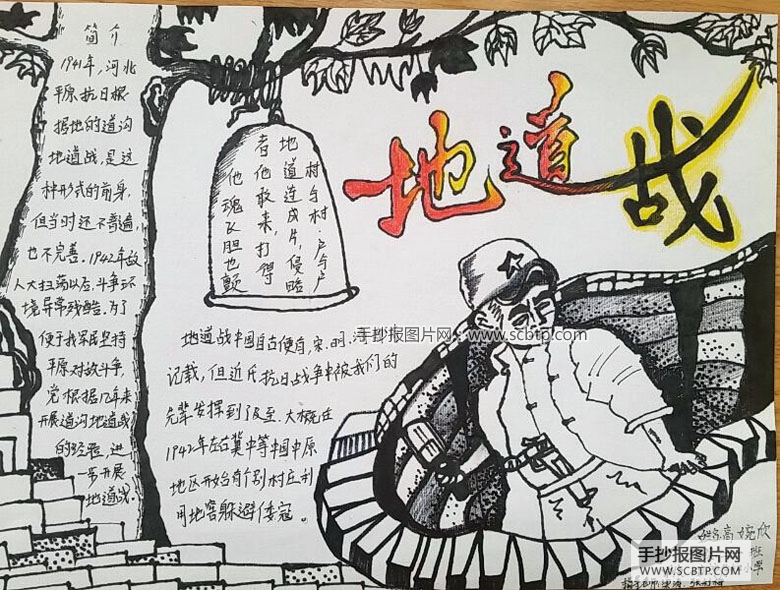 地道战
简介
1941年,河北
平原抗日根
据地的道沟
地道战,是这
种形式的前身,
但当时还不普遍,
也不完善。1942年敌
人大扫荡以后,斗争环
境异常残酷。为了
便于我军民坚持
平原对敌斗争,
党根据几年来
开展道沟地道战
的经验,进
一步开展
地道战。
村与村,户与户
地道连成片,侵略
者他敢来,打得
他魂飞胆也颤
地道战中国自古便有,宋、明
记载,但近斤抗日战争中被我们的
先辈发挥到了及至。大概在
1942年左右冀中等中国中原
地区开始有个别村庄利
用地窖躲避倭寇。
手抄报图片网-www.scbtp.com
高婉欣
班
小学
手抄报图片网
WWW.SCBTP.COM